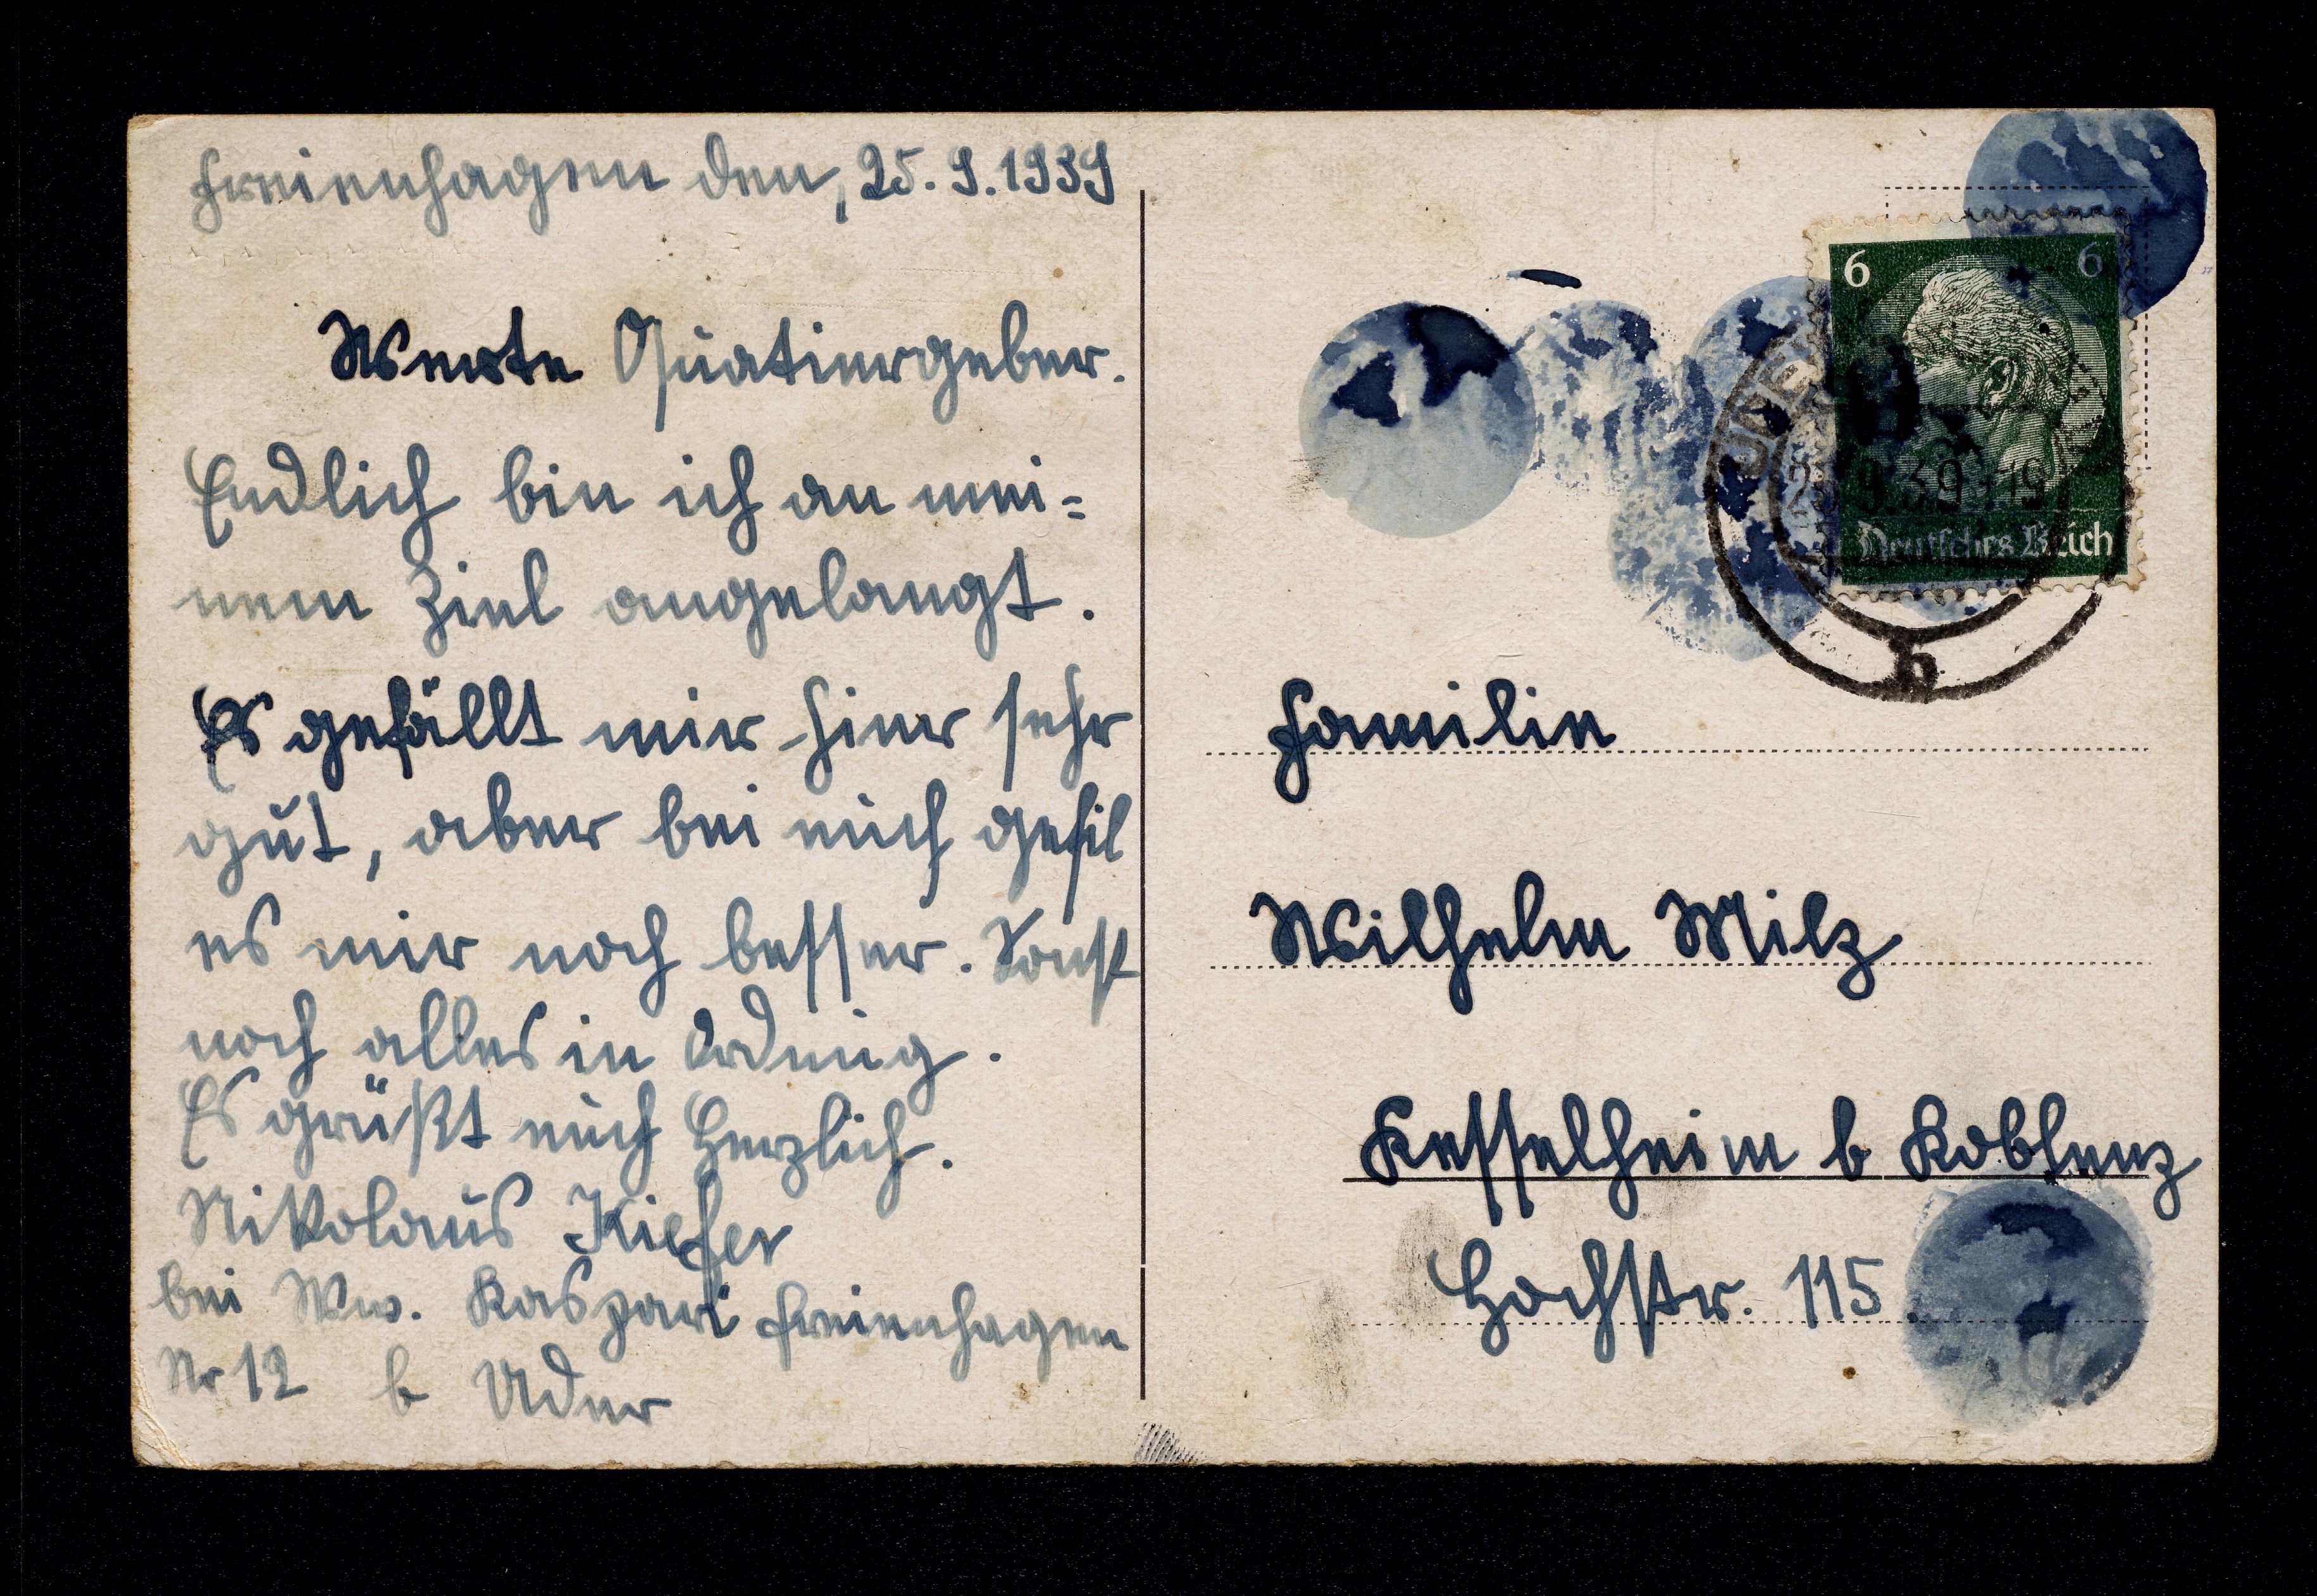 Freienhagen den, 25.9.1939
Werte Quatiergeber.
Endlich bin ich an mei=
nem Ziel angelangt.
Es gefällt mir hier sehr
gut, aber bei euch gefil
es mir noch besser. Sonst
noch alles in Ordnug.
Es grüßt euch Herzlich.
Nikolaus Kiefer
bei Ww. Kaspari Freienhagen
Nr 12 b Uder
6 6
Deutsches Reich
UDER
9.39-19
b
Familie
Wilhelm Milz
Kesselheim b Koblenz
Hochstr. 115.